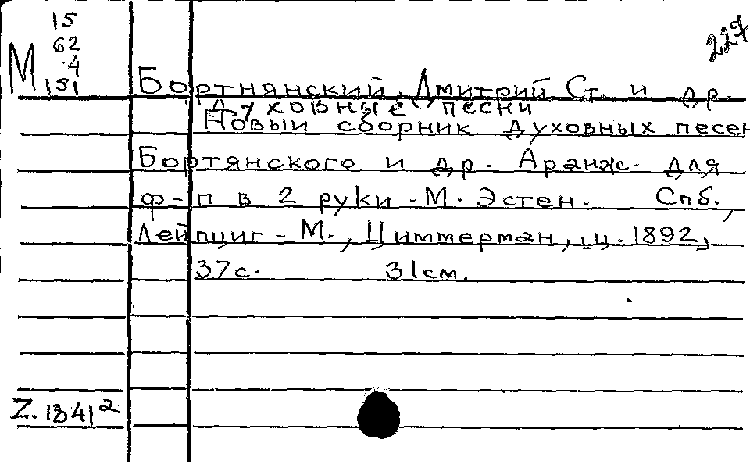 15
62
4
М 151
229
Бортнянский, Дмитрий Ст. и др.
Духовные песни
Новый сборник духовных песен
Бортянского и др. Аранж. для
ф-п в 2 руки - М. Эстен. Спб.,
Лейпциг - М., Циммерман, ц. 1892,
37с. 31см.
Z. 1841²